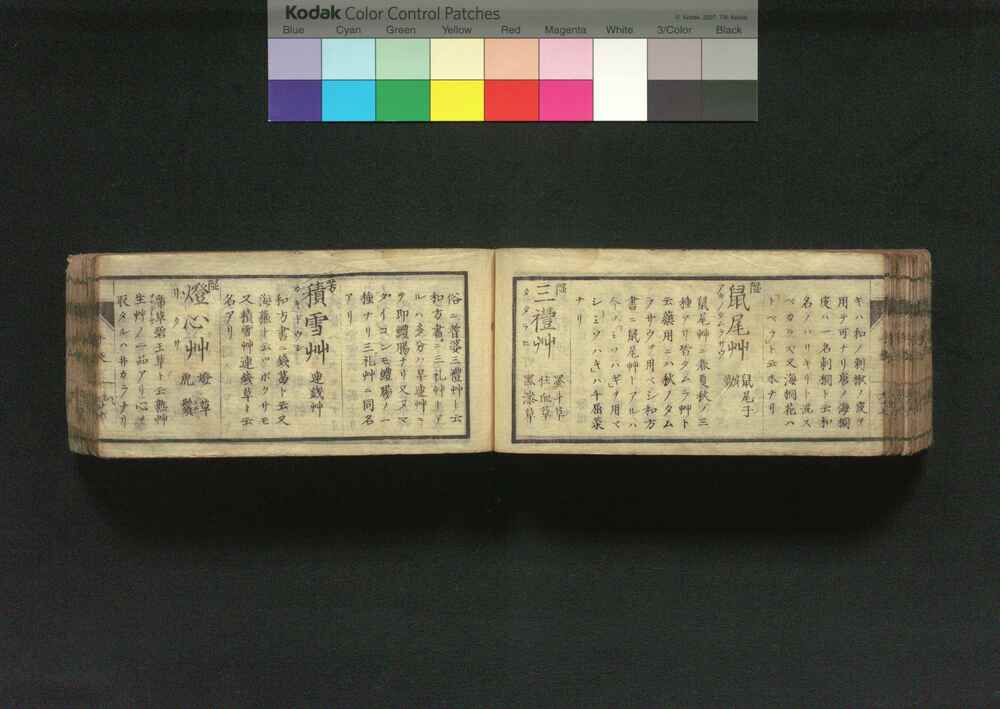 Kodak Color Control Patches
Blue Cyan Green Yellow Red Magenta White 3/Color Black
キハ和ノ刺楸ノ皮ヲ
用テ可ナリ唐ノ海桐
皮ハ一名刺桐ト云和
名ノハリキリト混ス
ベカラズ又海桐花ハ
トベラト云木ナリ
鼠尾艸
鼠尾子
鼠尾艸ニ春夏秋ノ三
種アリ皆タムラ艸ト
云藥用ニハ秋ノタム
ラサウヲ用ベシ和方
書ニ鼠尾艸トアルハ
今ノミソハギヲ用マ
シミソハギハ千屈菜
ナリ
三禮艸
住血草
俗ニ耆婆三禮艸ト云
和方書ニ三礼艸トア
ルハ多分ハ旱連艸
ヲ即鱧腸ナリ又ヌマ
ダイコンモ鱧腸ノ一
種ナリ三礼艸ニ同名
アリ
積雪艸
連錢艸
和方書ニ錢葛ト云又
海蘓ト云ツボクサモ
又積雪艸連錢草ト云
名アリ
燈心艸
燈草
虎鬚
碧玉草ト云熟艸
生艸ノ二品アリ心ヲ
取タルハ井カラノナリ